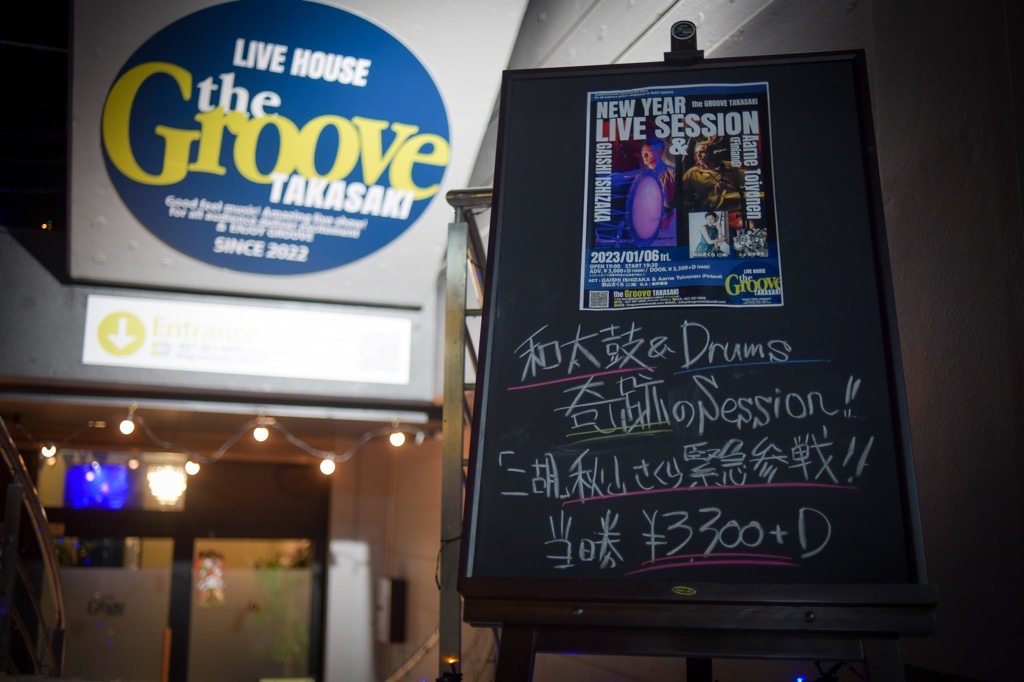 LIVE HOUSE
the
Groove
TAKASAKI
Good feel music! Amazing live show!
& ENJOY GROOVE
SINCE 2022
Entrance
NEW YEAR the GROOVE TAKASAKI
LIVE SESSION
&
GAISHI ISHIZAKA
Aarne Toivonen
(Finland)
2023/01/06 fri.
OPEN 19:00 START 19:30
ADV. ¥3,000+D / DOOR. ¥3,300+D
ACT : GAISHI ISHIZAKA & Aarne Toivonen (Finland)
the Groove TAKASAKI
LIVE HOUSE
the
Groove
TAKASAKI
和太鼓&Drums
奇跡のSession!!
「二胡 秋山さくら 緊急参戦」!!
当日券 ¥3300+D